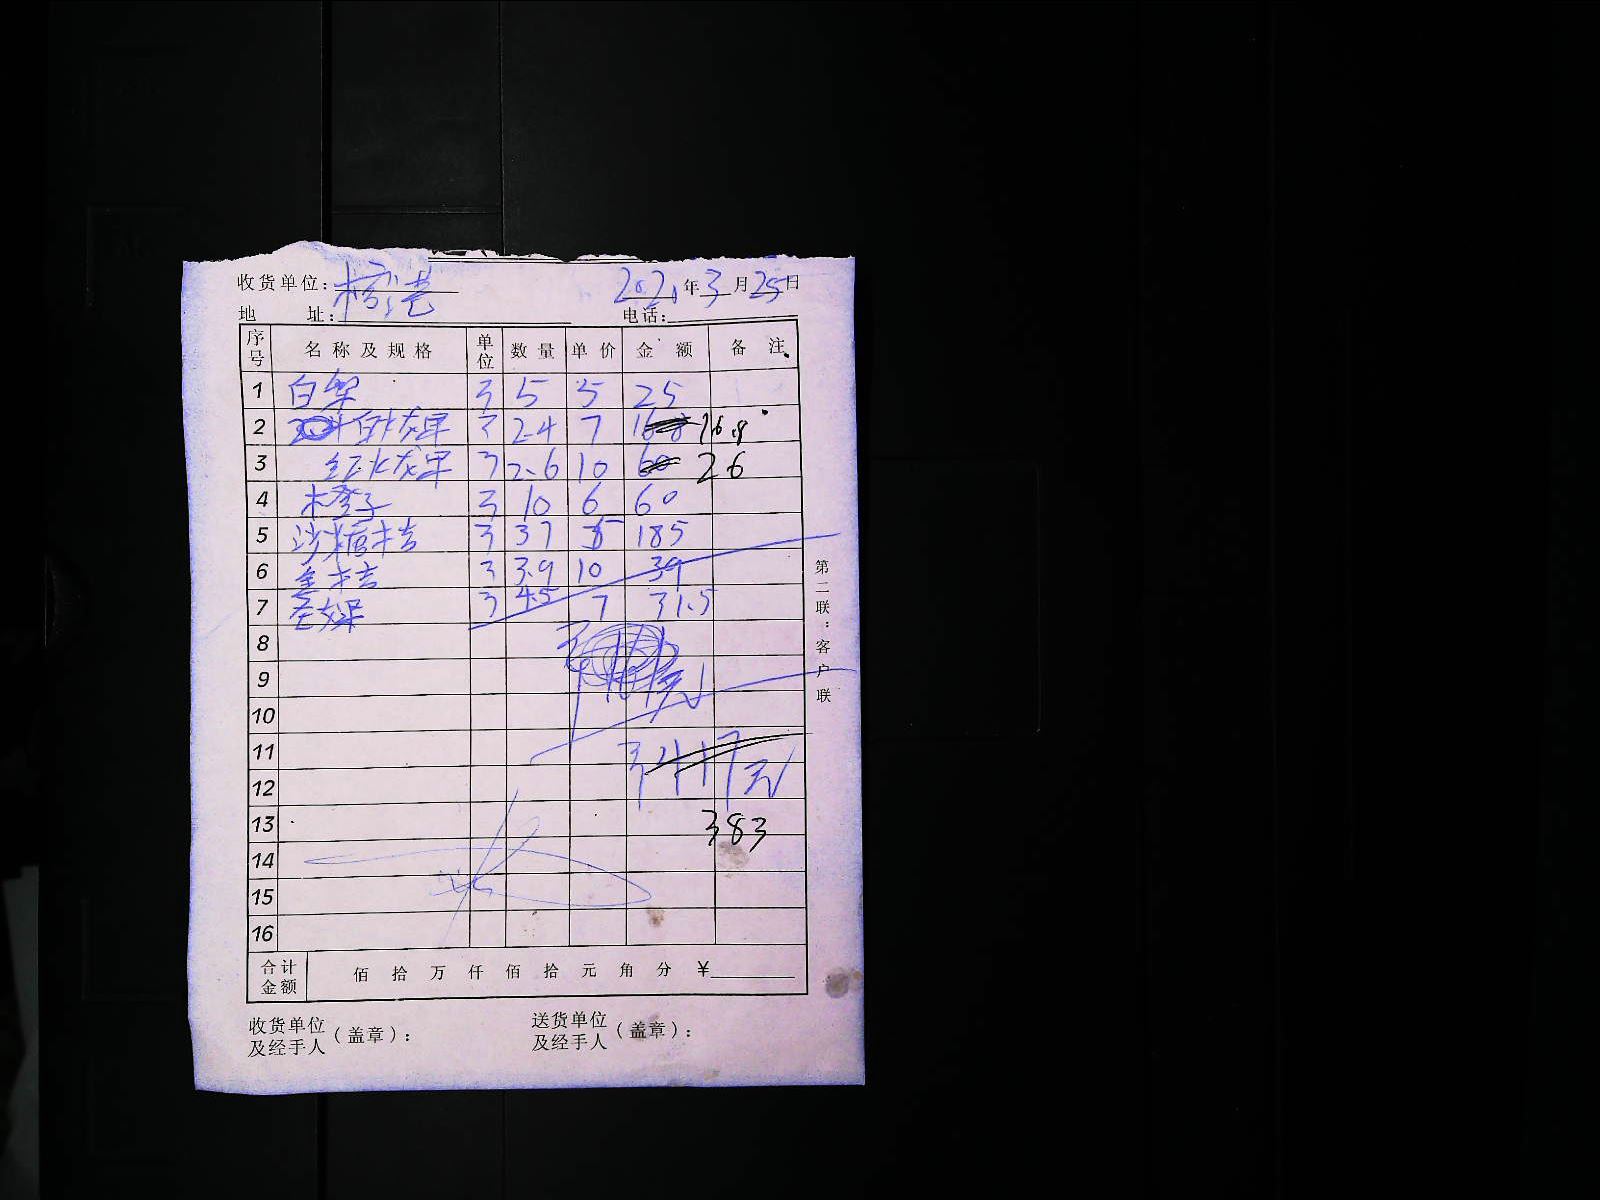 收货单位：
2021年3月25日
地 址：
电话：
序号 名称及规格 单位 数量 单价 金额 备注
1 白梨 5 5 25
2 白火龙果 2.4 7 16.8 16.8
3 红火龙果 2.6 10 60 26
4 木李子 10 6 60
5 沙糖桔 37 5 185
6 金桔 3.9 10 39
7 圣女果 4.5 7 31.5
8
9
10
11
417元
12
13 383
14
15
16
合计金额 佰 拾 万 仟 佰 拾 元 角 分 ¥
收货单位及经手人（盖章）：
送货单位及经手人（盖章）：
第二联：客户联